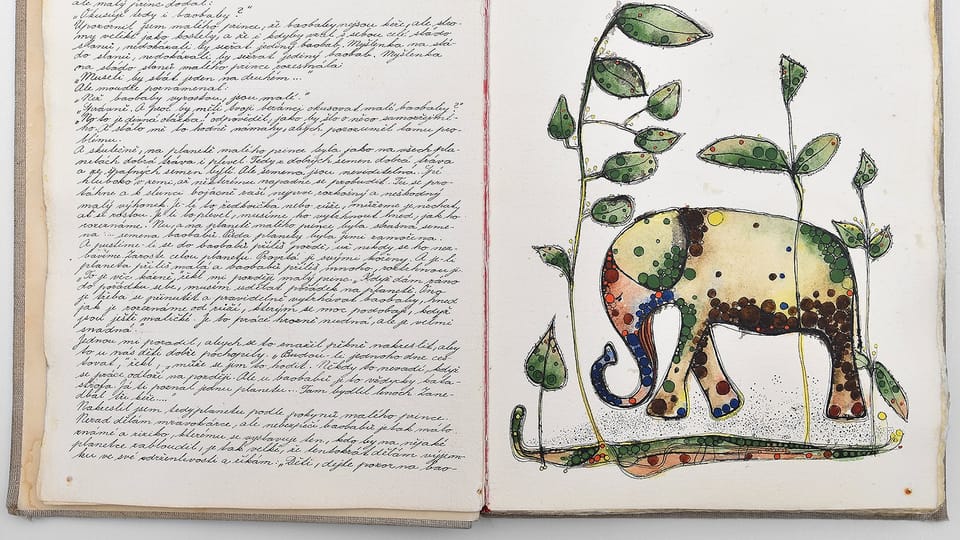 ale malý princ dodal:
„Okusují tedy i baobaby?"
Upozornil jsem malého prince, že baobaby nejsou keře, ale stro-
my velké jako kostely, a že i kdyby vzal s sebou celé stádo
slonů, nedokázali by sežrat jediný baobab. Myšlenka na stá-
do slonů, nedokázali by sežrat jediný baobab. Myšlenka
na stádo slonů malého prince rozesmála:
„Museli by stát jeden na druhém..."
Ale moudře poznamenal:
„Než baobaby vyrostou, jsou malé."
„Správně. A proč by měli tvoji beránci okusovat malé baobaby?"
„No to je divná otázka!" odpověděl, jako by šlo o něco samozřejmé-
ho. I stálo mě to hodně námahy, abych porozuměl tomu pro-
blému.
A skutečně, na planetě malého prince byla jako na všech pla-
netách dobrá tráva i plevel. Tedy z dobrých semen dobrá tráva
a ze špatných semen býlí. Ale semena jsou neviditelná. Spí
hluboko v zemi, až některému napadne se probudit. Tu se pro-
táhne a k slunci bojácně raší nejprve rozkošný a neškodný
malý výhonek. Je-li to ředkvička nebo růže, můžeme je nechat,
ať si rostou. Je-li to plevel, musíme ho vytrhnout hned, jak ho
rozeznáme. Nu, a na planetě malého prince byla strašná seme-
na ... semena baobabů. Půda planety byla jimi zamořena.
A pustíme-li se do baobabu příliš pozdě, už nikdy se ho nez-
bavíme. Zaroste celou planetu. Provrtá ji svými kořeny. A je-li
planeta příliš malá a baobabů příliš mnoho, roztrhnou ji.
„To je věc kázně," řekl mi později malý princ. „Když dám ráno
do pořádku sebe, musím udělat pořádek na planetě. Ono
je třeba se přinutit a pravidelně vytrhávat baobaby, hned
jak je rozeznáme od růží, kterým se moc podobají, když
jsou ještě maličké. Je to práce hrozně nudná, ale je velmi
snadná."
Jednou mi poradil, abych se to snažil pěkně nakreslit, aby
to u nás děti dobře pochopily. „Budou-li jednoho dne ces-
tovat," řekl, „může se jim to hodit. Někdy to nevadí, když
se práce odloží na později. Ale u baobabů je to vždycky kata-
strofa. Já ti poznal jednu planetu... Tam bydlil lenoch. Zane-
dbal tři keře..."
Nakreslil jsem tedy planetu podle pokynů malého prince.
Nerad dělám mravokárce, ale nebezpečí baobabů je tak málo
známé a riziko, kterému se vystavuje ten, kdo by na nějaké
planetce zabloudil, je tak velké, že tentokrát dělám výjim-
ku ve své zdrženlivosti a říkám: „Děti, dejte pozor na bao-